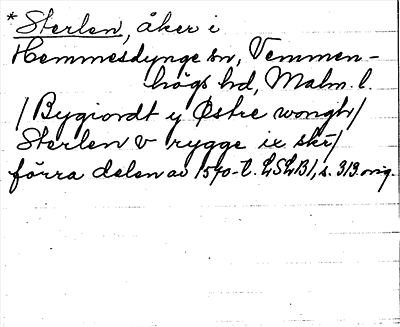 * Sterlen, åker i
Hemmesdynge sn, Vemmen-
högs hd, Malm. l.
/Bygiordt y Østre wongh/
Sterlen v rygge ix skr/
förra delen av 1570-t. LSLB1, s. 313 orig.